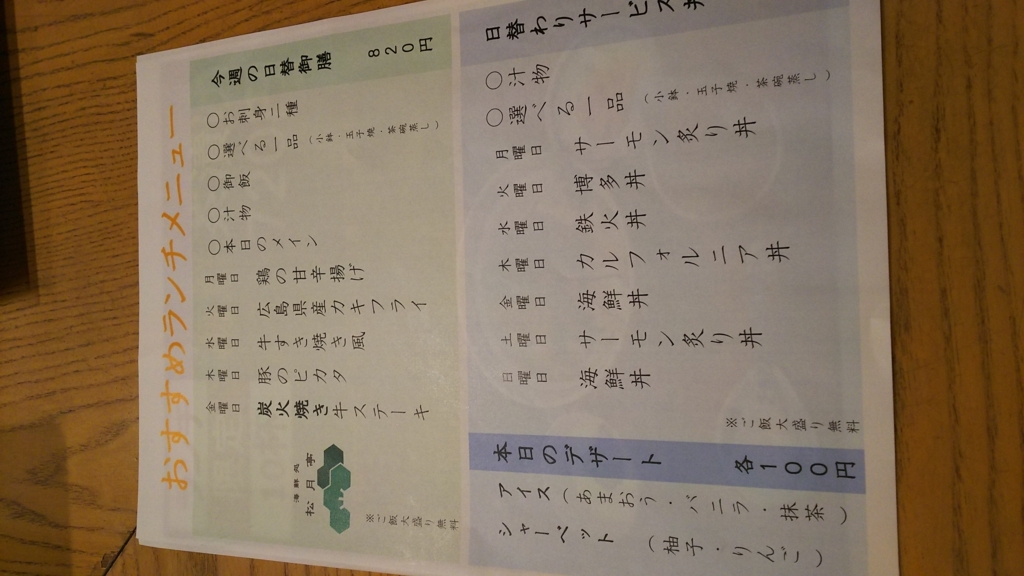 おすすめランチメニュー
今週の日替御膳
820円
○お刺身二種
○選べる一品
(小鉢・玉子焼・茶碗蒸し)
○御飯
○汁物
○本日のメイン
月曜日 鶏の甘辛揚げ
火曜日 広島県産カキフライ
水曜日 牛すき焼き風
木曜日 豚のピカタ
金曜日 炭火焼き牛ステーキ
松月亭
※ご飯大盛り無料
日替わりサービス丼
○汁物
○選べる一品
(小鉢・玉子焼・茶碗蒸し)
月曜日 サーモン炙り丼
火曜日 博多丼
水曜日 鉄火丼
木曜日 カルフォルニア丼
金曜日 海鮮丼
土曜日 サーモン炙り丼
日曜日 海鮮丼
※ご飯大盛り無料
本日のデザート
各100円
アイス(あまおう・バニラ・抹茶)
シャーベット
(柚子・りんご)